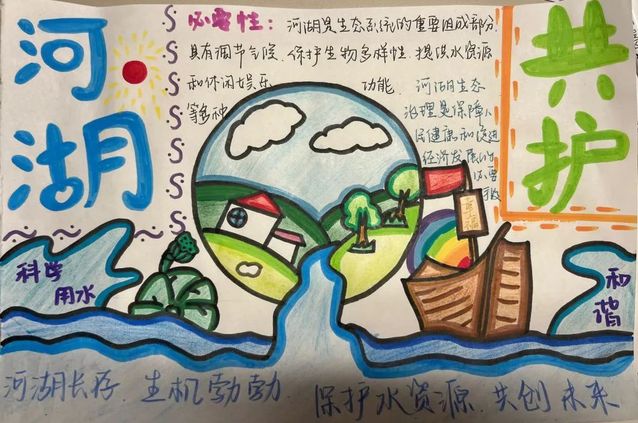 河湖
共护
必要性：河湖是生态系统的重要组成部分，
具有调节气候、保护生物多样性、提供水资源
和休闲娱乐
等多种
功能。河湖生态
治理是保障人
民健康和促进
经济发展的
必要
手段
幸福
科学
用水
和谐
河湖长存，生机勃勃
保护水资源，共创未来